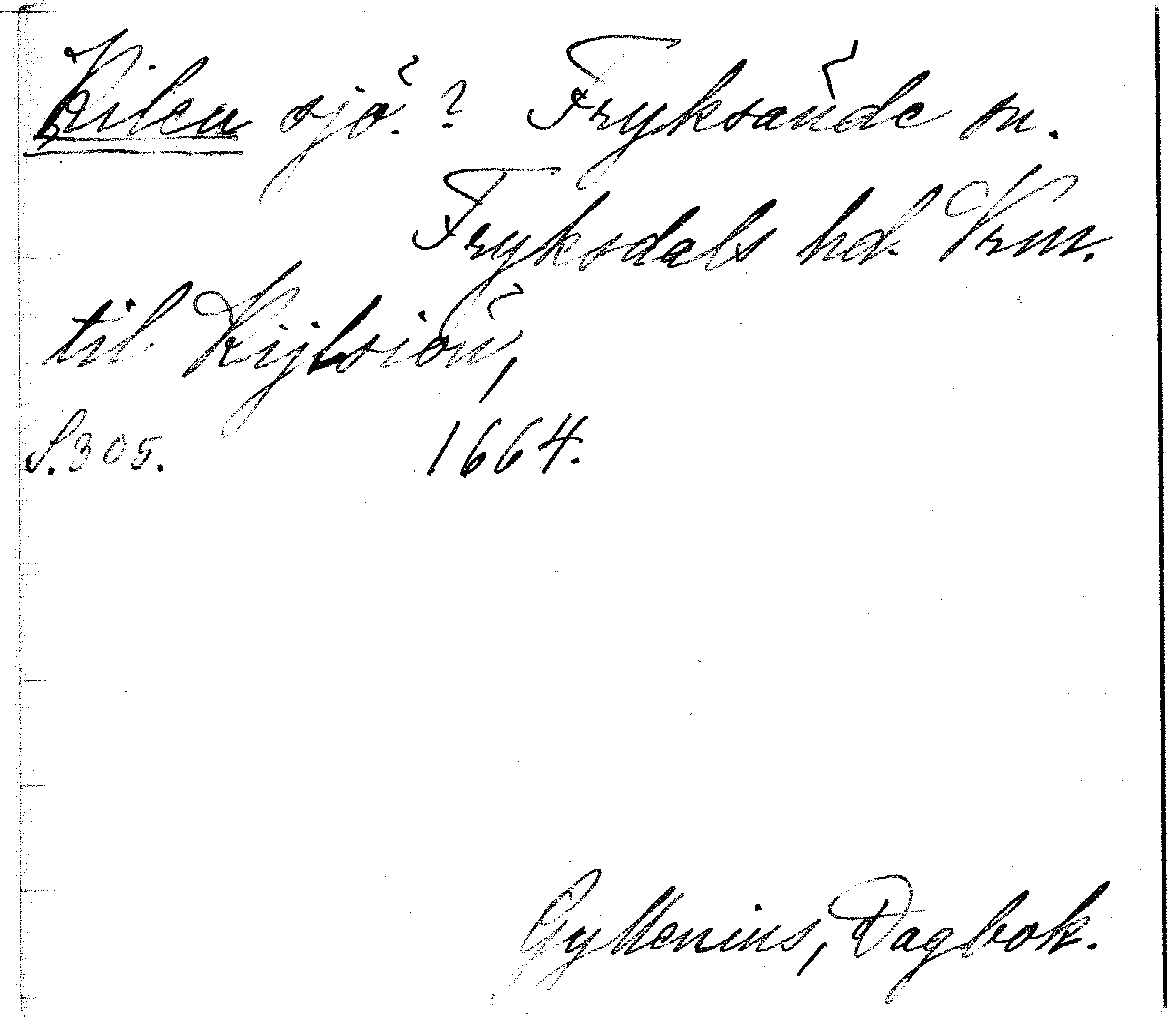 Kilen sjö? Fryksände sn.
Fryksdals hd. Vrm.
til Kijlsiön,
S. 305. 1664.
Gyllenius, Dagbok.